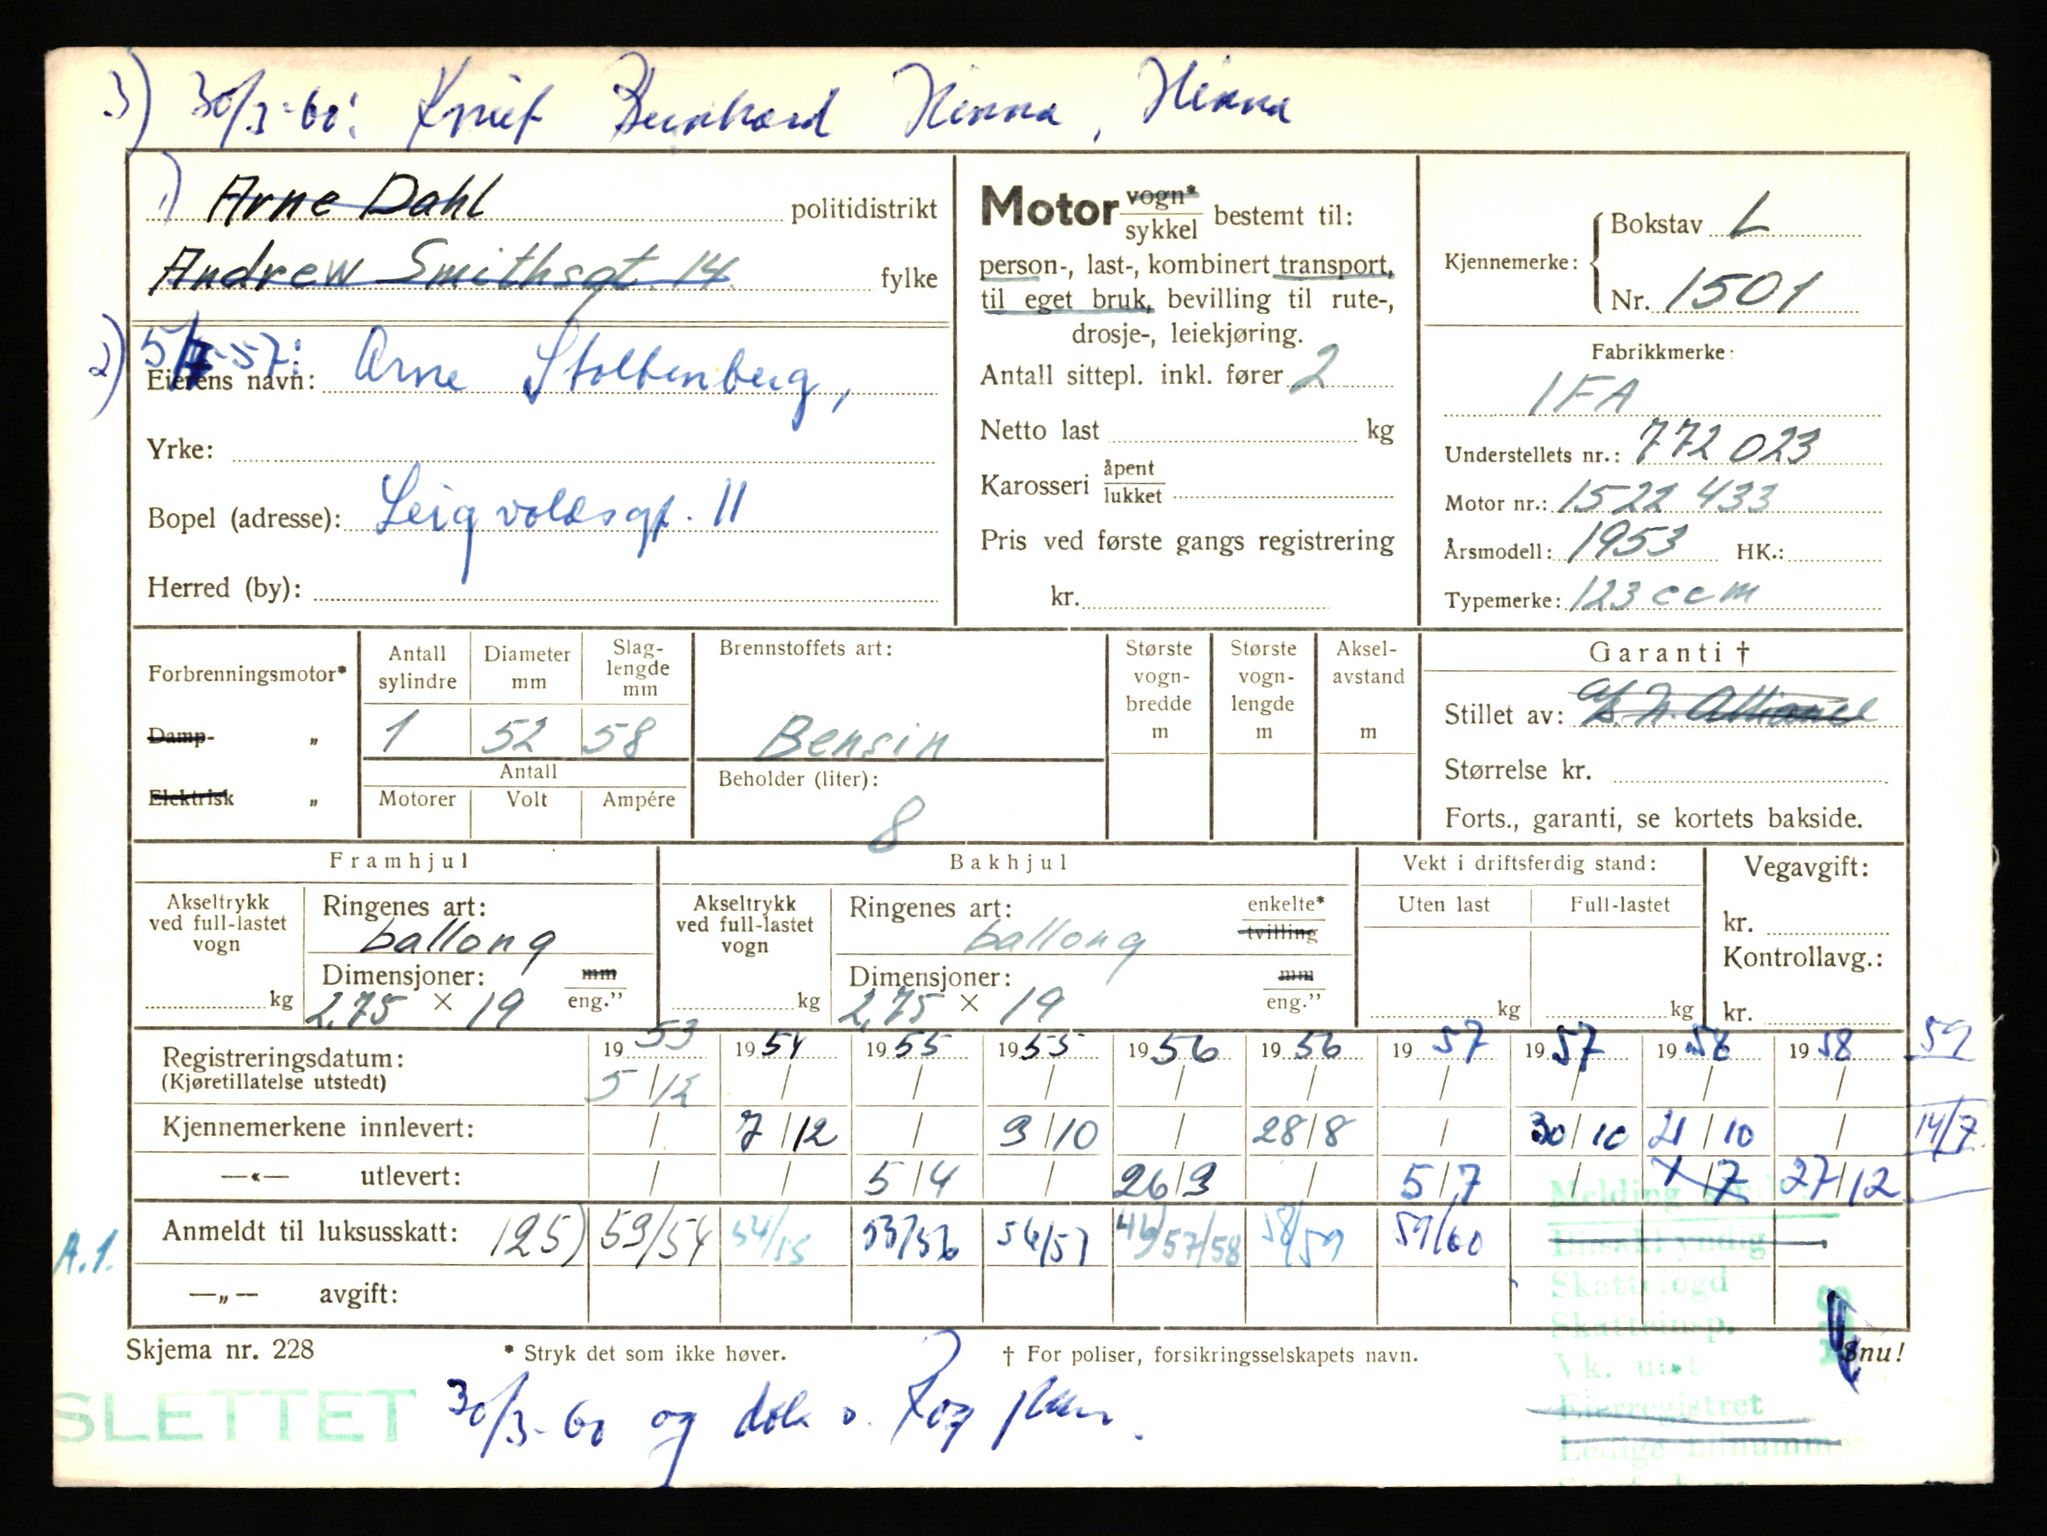 3) 30/3-60: Knut Bernhard Hinna, Hinna
1) Arne Dahl politidistrikt
Andrew Smithsgt. 14 fylke
2) 5/7-57:
Eierens navn: Arne Stoltenberg,
Yrke:
Bopel (adresse): Leigvoldsgt. 11
Herred (by):
Motor vogn* / sykkel bestemt til:
person-, last-, kombinert transport,
til eget bruk, bevilling til rute-,
drosje-, leiekjøring.
Antall sittepl. inkl. fører 2
Netto last kg
Karosseri åpent / lukket
Pris ved første gangs registrering
kr.
Kjennemerke: { Bokstav L
Nr. 1501
Fabrikkmerke:
IFA
Understellets nr.: 772 023
Motor nr.: 1522 433
Årsmodell: 1953 HK.:
Typemerke: 123 ccm
Forbrenningsmotor*
Damp- „
Elektrisk „
Antall sylindre
Diameter mm
Slag-lengde mm
1 52 58
Antall
Motorer Volt Ampére
Brennstoffets art:
Bensin
Beholder (liter):
8
Største vogn-bredde m
Største vogn-lengde m
Aksel-avstand m
Garanti †
Stillet av:
Størrelse kr.
Forts., garanti, se kortets bakside.
Framhjul
Akseltrykk ved full-lastet vogn
kg
Ringenes art:
ballong
Dimensjoner: mm / eng.”
2,75 × 19
Bakhjul
Akseltrykk ved full-lastet vogn
kg
Ringenes art: enkelte* / tvilling
ballong
Dimensjoner: mm / eng.”
2,75 × 19
Vekt i driftsferdig stand:
Uten last Full-lastet
kg kg
Vegavgift:
kr.
Kontrollavg.:
kr.
Registreringsdatum: 1953 1954 1955 1955 1956 1956 1957 1957 1958 1958 59
(Kjøretillatelse utstedt) 5/12 / / / / / / / / /
Kjennemerkene innlevert: / 7/12 / 3/10 / 28/8 / 30/10 21/10 / 14/7
—«— utlevert: / / 5/4 / 26/3 / 5/7 / 27/12
Anmeldt til luksusskatt: 125) 53/54 54/55 55/56 56/57 57/58 58/59 59/60
A.1.
—„— avgift:
Skjema nr. 228 * Stryk det som ikke høver. † For poliser, forsikringsselskapets navn. Snu!
Melding
Bilsakkyndig
Skattefogd
Skatteinsp.
Vk. utst
Eierregistret
Ledige bilnumm
SLETTET
30/3-60 og dek.